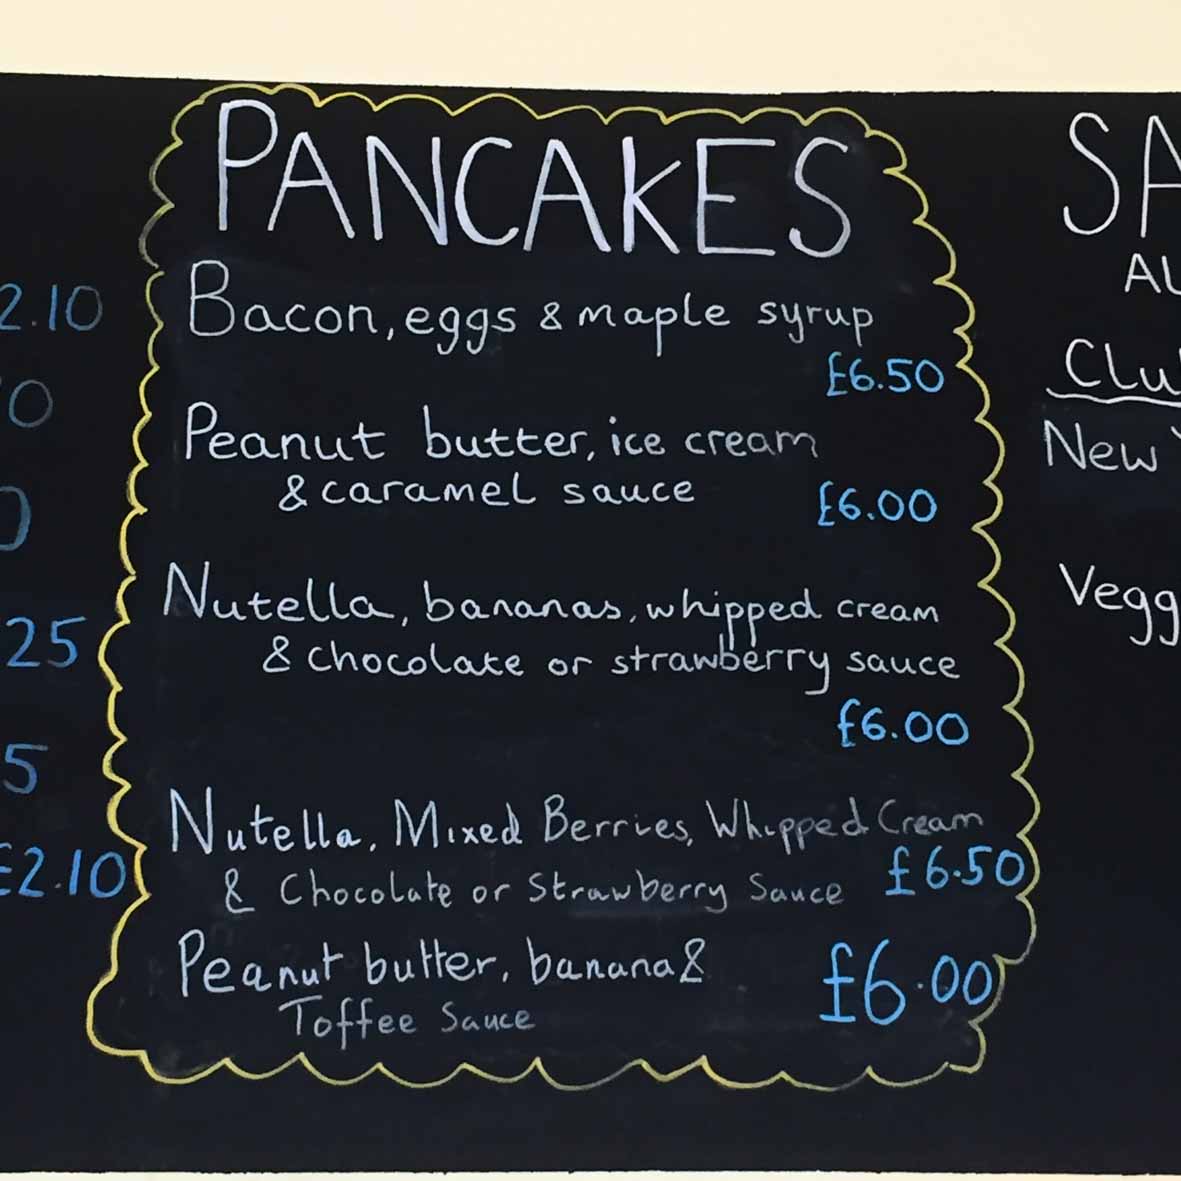 PANCAKES
Bacon, eggs & maple syrup
£6.50
Peanut butter, ice cream
& caramel sauce £6.00
Nutella, bananas, whipped cream
& chocolate or strawberry sauce
£6.00
Nutella, Mixed Berries, Whipped Cream
& Chocolate or Strawberry Sauce £6.50
Peanut butter, banana &
Toffee Sauce £6.00
2.10
0
25
5
£2.10
New